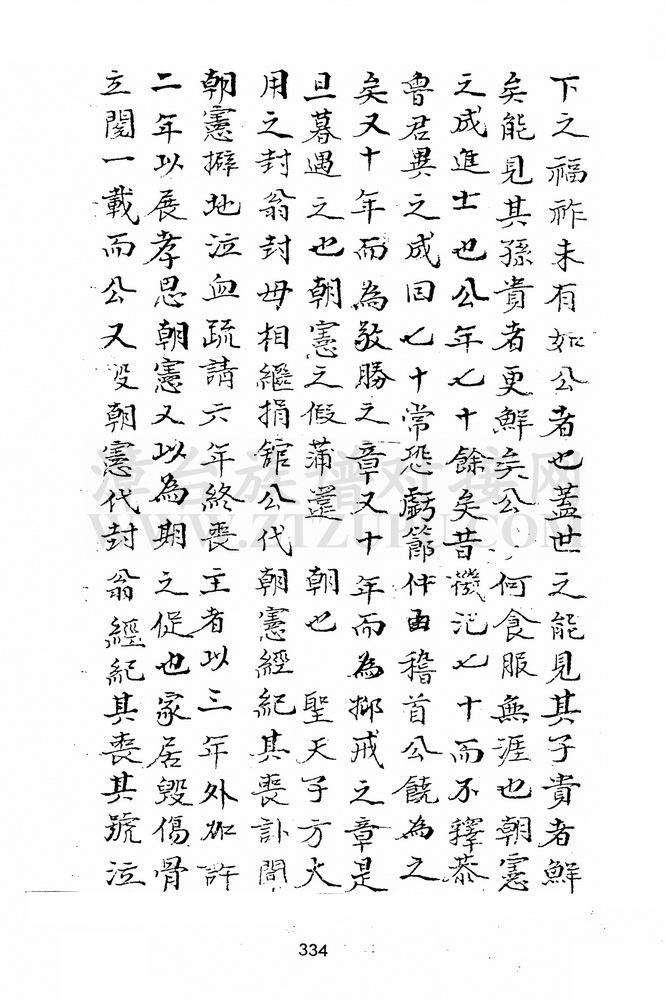 下之福祚未有如公者也蓋世之能見其子貴者鮮
矣能見其孫貴者更鮮矣公何食服無涯也朝憲
之成進士也公年七十餘矣昔機汜七十而不釋恭
魯君異之成回七十常恐虧節仲由稽首公饒為之
矣又十年而為敬勝之章又十年而為抑戒之章是
旦暮遇之也朝憲之假蒲還朝也聖天子方大
用之封翁封母相繼捐舘公代朝憲經紀其喪訃聞
朝憲擗地泣血疏請六年終喪主者以三年外加許
二年以展孝思朝憲又以為期之促也家居毀傷骨
立閱一載而公又没朝憲代封翁經紀其喪其號泣
漳台族谱对接网
WWW.ZTZUPU.COM
334